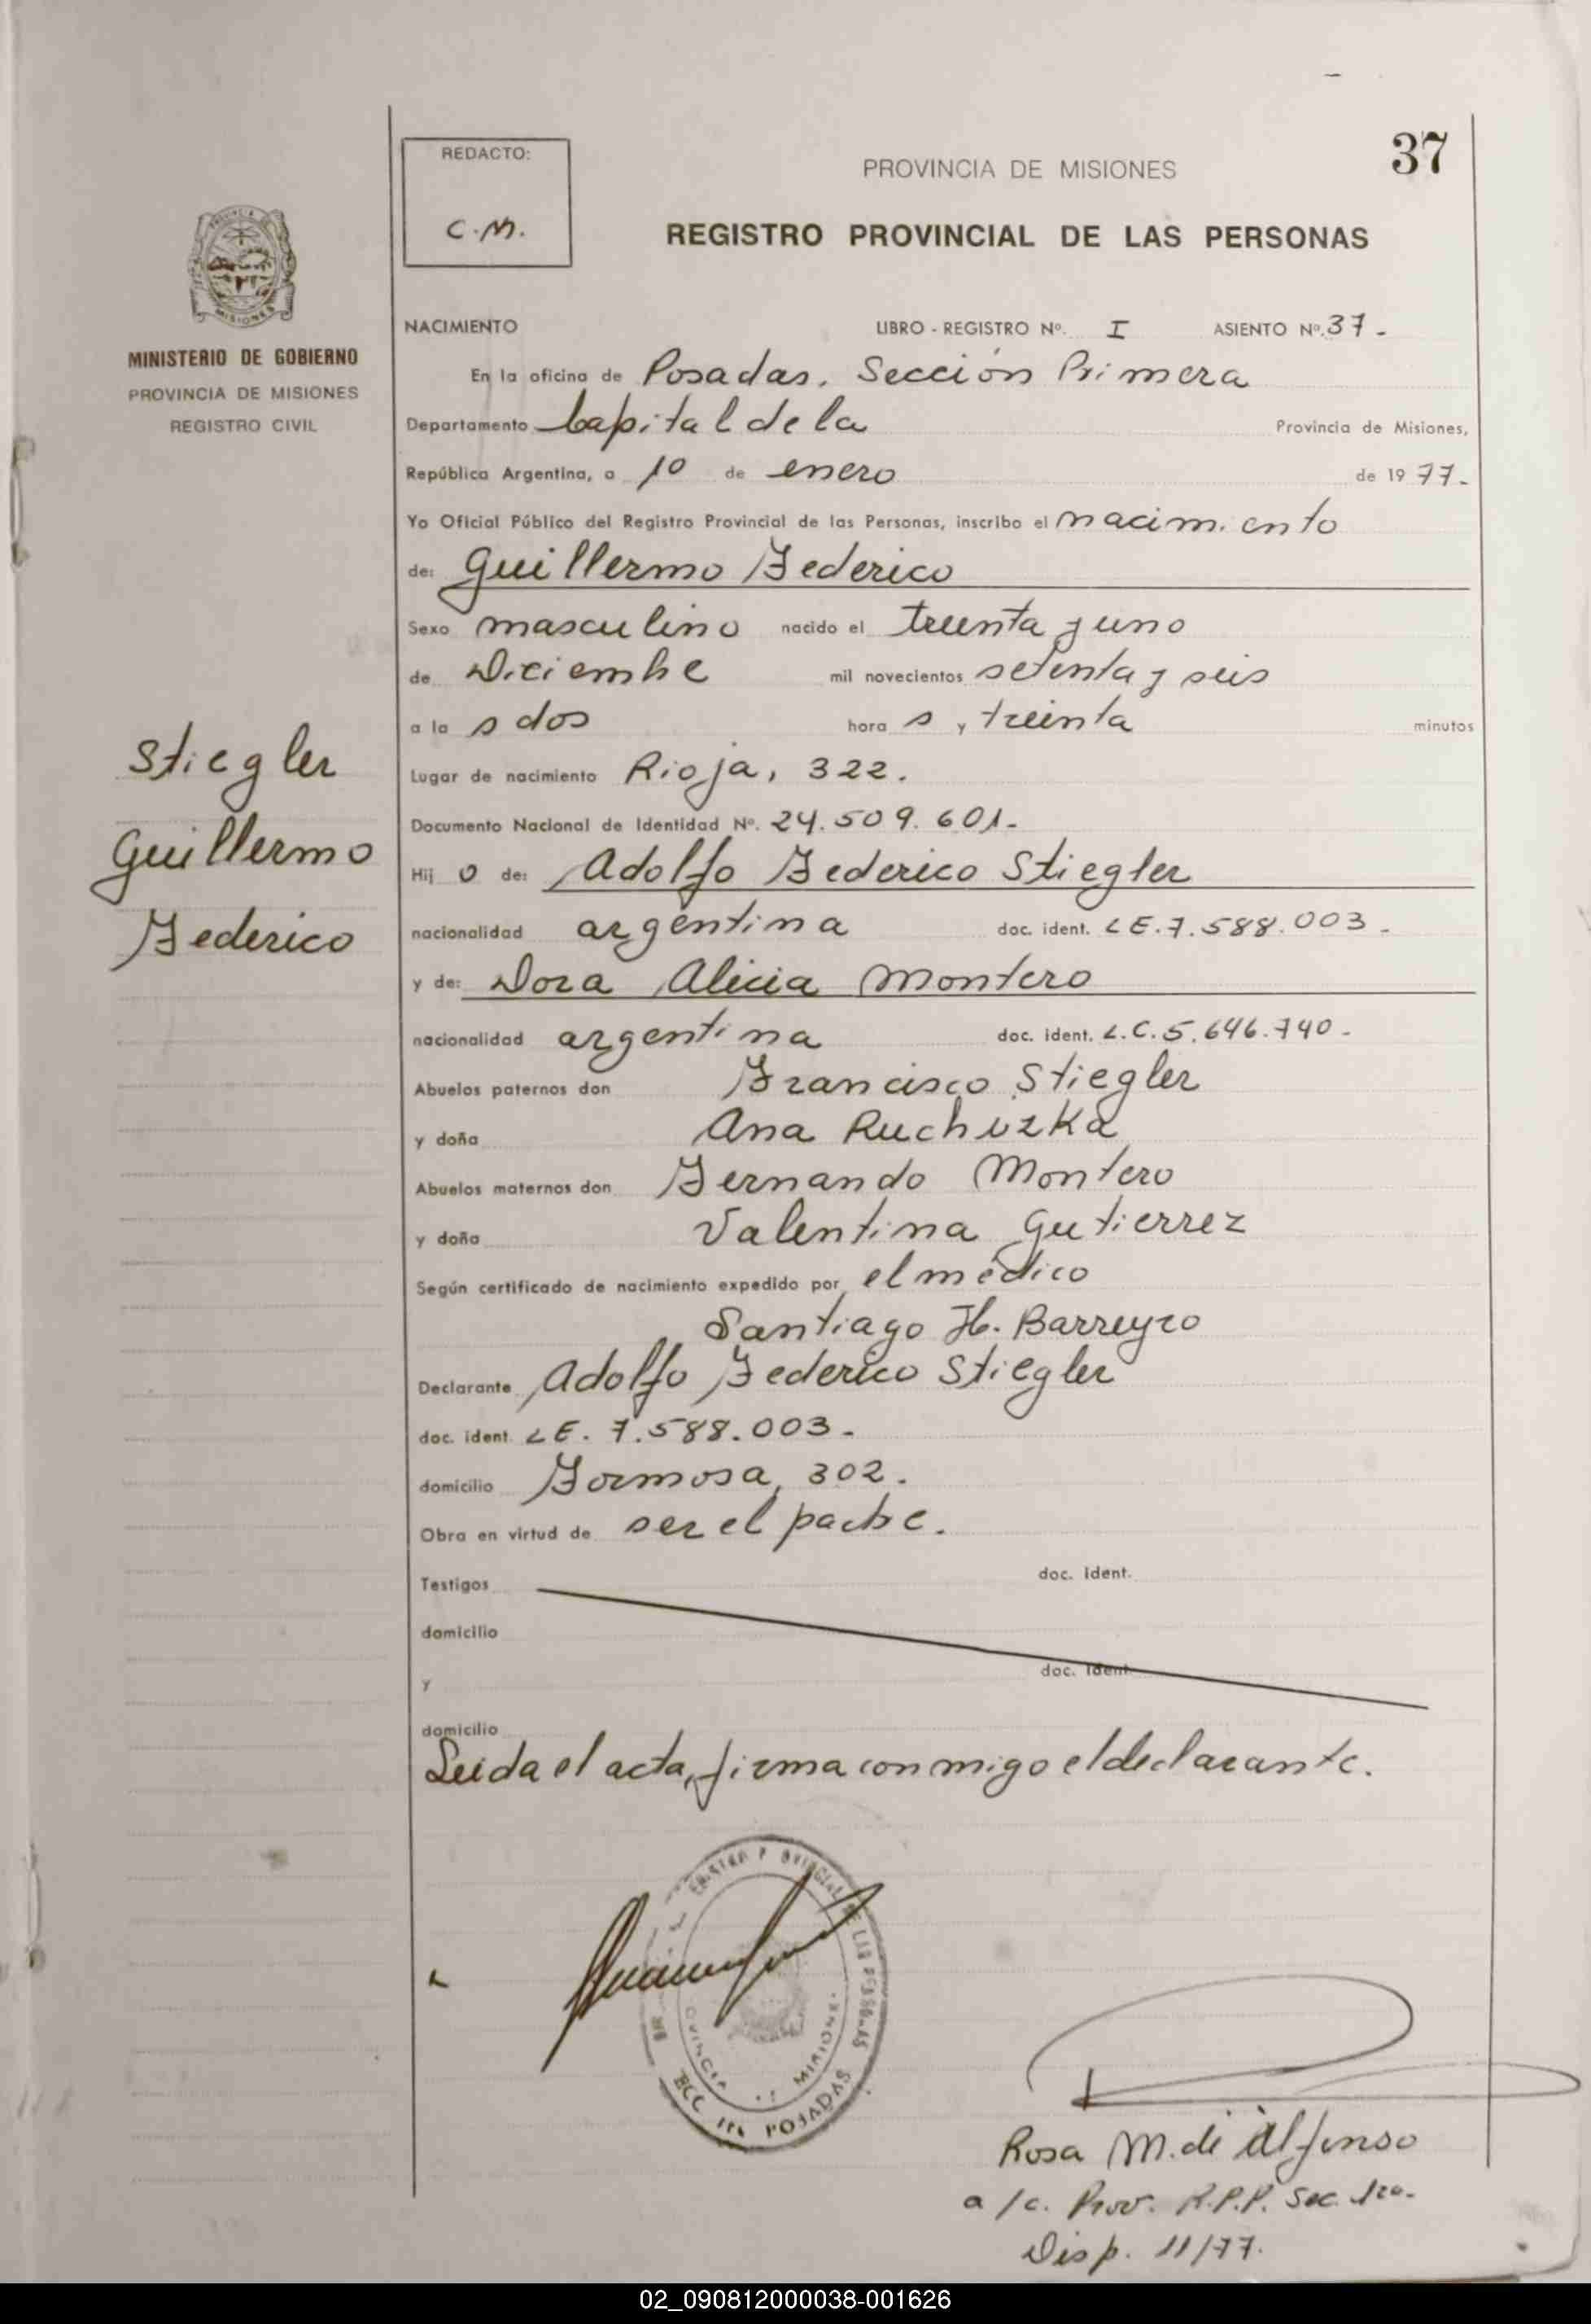 37
REDACTO:
C.M.
PROVINCIA DE MISIONES
REGISTRO PROVINCIAL DE LAS PERSONAS
MISIONES
MINISTERIO DE GOBIERNO
PROVINCIA DE MISIONES
REGISTRO CIVIL
Stiegler
Guillermo
Federico
NACIMIENTO LIBRO - REGISTRO Nº. I ASIENTO Nº. 37-
En la oficina de Posadas. Sección Primera
Departamento Capital de la Provincia de Misiones,
República Argentina, a 10 de enero de 1977-
Yo Oficial Público del Registro Provincial de las Personas, inscribo el nacimiento
de: Guillermo Federico
Sexo masculino nacido el treinta y uno
de Diciembre mil novecientos setenta y seis
a la s dos hora s y treinta minutos
Lugar de nacimiento Rioja, 322.
Documento Nacional de Identidad Nº. 24.509.601-
Hij o de: Adolfo Federico Stiegler
nacionalidad argentina doc. ident. LE.7.588.003-
y de: Dora Alicia Montero
nacionalidad argentina doc. ident. L.C.5.646.740-
Abuelos paternos don Francisco Stiegler
y doña Ana Ruchuzka
Abuelos maternos don Fernando Montero
y doña Valentina Gutierrez
Según certificado de nacimiento expedido por el médico
Santiago H. Barreyro
Declarante Adolfo Federico Stiegler
doc. ident. LE. 7.588.003-
domicilio Formosa, 302.
Obra en virtud de ser el padre.
Testigos doc. ident.
domicilio
y doc. ident.
domicilio
Leida el acta, firma conmigo el declarante.
POSADAS
Rosa M. di Alfonso
a/c. Prov. R.P.P. Sec. 1ra.
Disp. 11/77.
02_090812000038-001626